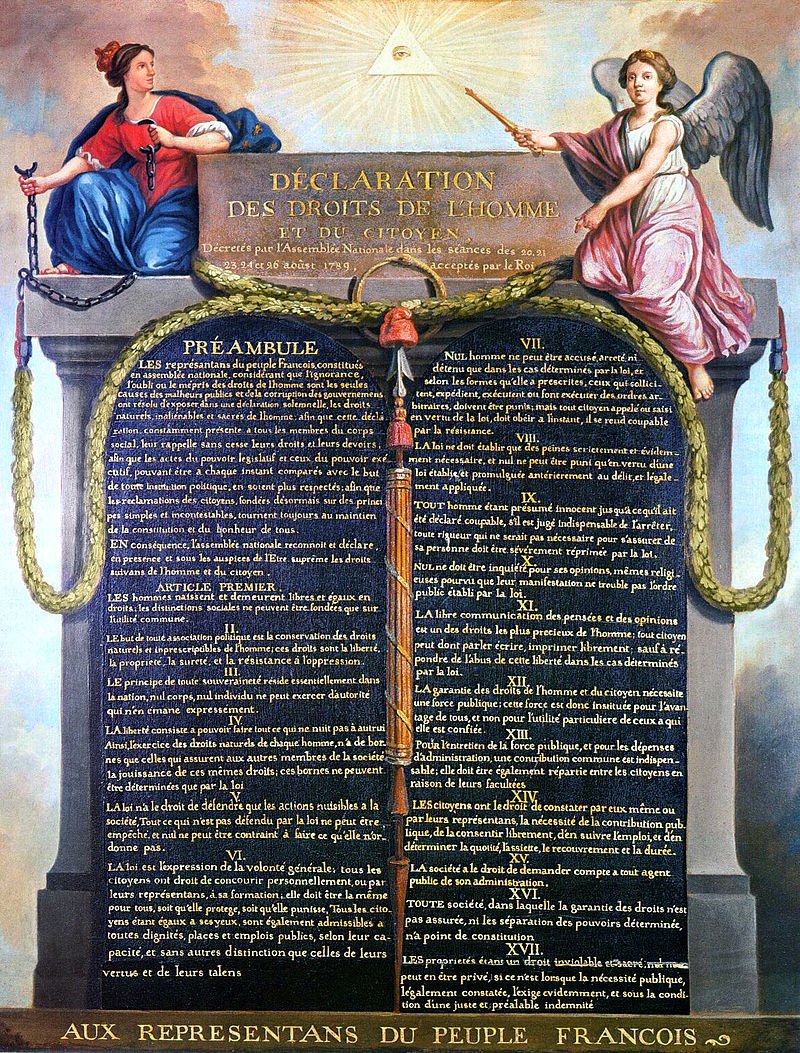 DÉCLARATION
DES DROITS DE L'HOMME
ET DU CITOYEN,
Décretés par l'Assemblée Nationale dans les séances des 20. 21
23. 24 et 26 aoûst 1789, acceptés par le Roi
PRÉAMBULE
LES représantans du peuple François, constitués
en assemblée nationale, considérant que l'ignorance,
l'oubli ou le mépris des droits de l'homme sont les seules
causes des malheurs publics et de la corruption des gouvernemens
ont résolu d'exposer dans une déclaration solemnelle, les droits
naturels, inaliénables et sacrés de l'homme; afin que cette décla
ration, constamment présente a tous les membres du corps
social, leur rappelle sans cesse leurs droits et leurs devoirs;
afin que les actes du pouvoir législatif et ceux du pouvoir exé
cutif, pouvant être a chaque instant comparés avec le but
de toute institution politique, en soient plus respectés; afin que
les reclamations des citoyens, fondées désormais sur des princi
pes simples et incontestables, tournent toujours au maintien
de la constitution et du bonheur de tous.
EN conséquence, l'assemblée nationale reconnoit et déclare,
en presence et sous les auspices de l'Etre suprême les droits
suivans de l'homme et du citoyen.
ARTICLE PREMIER.
LES hommes naissent et demeurent libres et égaux en
droits; les distinctions sociales ne peuvent être fondées que sur
l'utilité commune.
II.
LE but de toute association politique est la conservation des droits
naturels et inprescriptibles de l'homme; ces droits sont la liberté,
la propriété, la sureté, et la résistance à l'oppression.
III.
LE principe de toute souveraineté réside essentiellement dans
la nation, nul corps, nul individu ne peut exercer d'autorité
qui n'en émane expressément.
IV.
LA liberté consiste a pouvoir faire tout ce qui ne nuit pas à autrui
Ainsi, l'exercice des droits naturels de chaque homme, n'a de bor
nes que celles qui assurent aux autres membres de la société
la jouissance de ces mêmes droits; ces bornes ne peuvent
être déterminées que par la loi
V.
LA loi n'a le droit de défendre que les actions nuisibles a la
société, Tout ce qui n'est pas défendu par la loi ne peut être
empêché, et nul ne peut être contraint à faire ce qu'elle n'or-
donne pas.
VI.
LA loi est l'expression de la volonté générale; tous les
citoyens ont droit de concourir personnellement, ou par
leurs représentans, à sa formation; elle doit être la même
pour tous, soit qu'elle protege, soit qu'elle punisse, Tous les cito
yens étant égaux a ses yeux, sont également admissibles a
toutes dignités, places et emplois publics, selon leur ca-
pacité, et sans autres distinction que celles de leurs
vertus et de leurs talens
VII.
NUL homme ne peut être accusé, arreté, ni
détenu que dans les cas déterminés par la loi, et
selon les formes qu'elle a prescrites, ceux qui sollici-
tent, expédient, exécutent ou font exécuter des ordres ar-
bitraires, doivent être punis; mais tout citoyen appelé ou saisi
en vertu de la loi, doit obéir a l'instant, il se rend coupable
par la résistance.
VIII.
LA loi ne doit établir que des peines strictement et évidem-
ment nécessaire, et nul ne peut être puni qu'en vertu d'une
loi établie, et promulguée antérierement au délit, et légale-
ment appliquée.
IX.
TOUT homme étant présumé innocent jusqu'a ce qu'il ait
été déclaré coupable, s'il est jugé indispensable de l'arrêter,
toute rigueur qui ne serait pas nécessaire pour s'assurer de
sa personne doit être sévérement réprimée par la loi.
X.
NUL ne doit être inquiété pour ses opinions, mêmes religi-
euses pourvu que leur manifestation ne trouble pas l'ordre
public établi par la loi.
XI.
LA libre communication des pensées et des opinions
est un des droits les plus precieux de l'homme; tout citoyen
peut dont parler écrire, imprimer librement; sauf à ré-
pondre de l'abus de cette liberté dans les cas déterminés
par la loi.
XII.
LA garantie des droits de l'homme et du citoyen nécessite
une force publique; cette force est donc instituée pour l'avan-
tage de tous, et non pour l'utilité particuliere de ceux a qui
elle est confiée.
XIII.
POUR l'entretien de la force publique, et pour les dépenses
d'administration, une contribution commune est indispen-
sable; elle doit être également répartie entre les citoyens en
raison de leurs facultées
XIV.
LES citoyens ont le droit de constater par eux même ou
par leurs représentans, la nécessité de la contribution pub-
lique, de la consentir librement, d'en suivre l'emploi, et d'en
déterminer la quotité, l'assiette, le recouvrement et la durée.
XV.
LA société a le droit de demander compte a tout agent
public de son administration.
XVI.
TOUTE société, dans laquelle la garantie des droits n'est
pas assurée, ni les séparation des pouvoirs déterminée,
n'a point de constitution
XVII.
LES proprietés étant un droit inviolable et sacré, nul ne
peut en être privé; si ce n'est lorsque la nécessité publique,
légalement constatée, l'exige evidemment, et sous la condi
tion d'une juste et préalable indemnité
AUX REPRESENTANS DU PEUPLE FRANCOIS